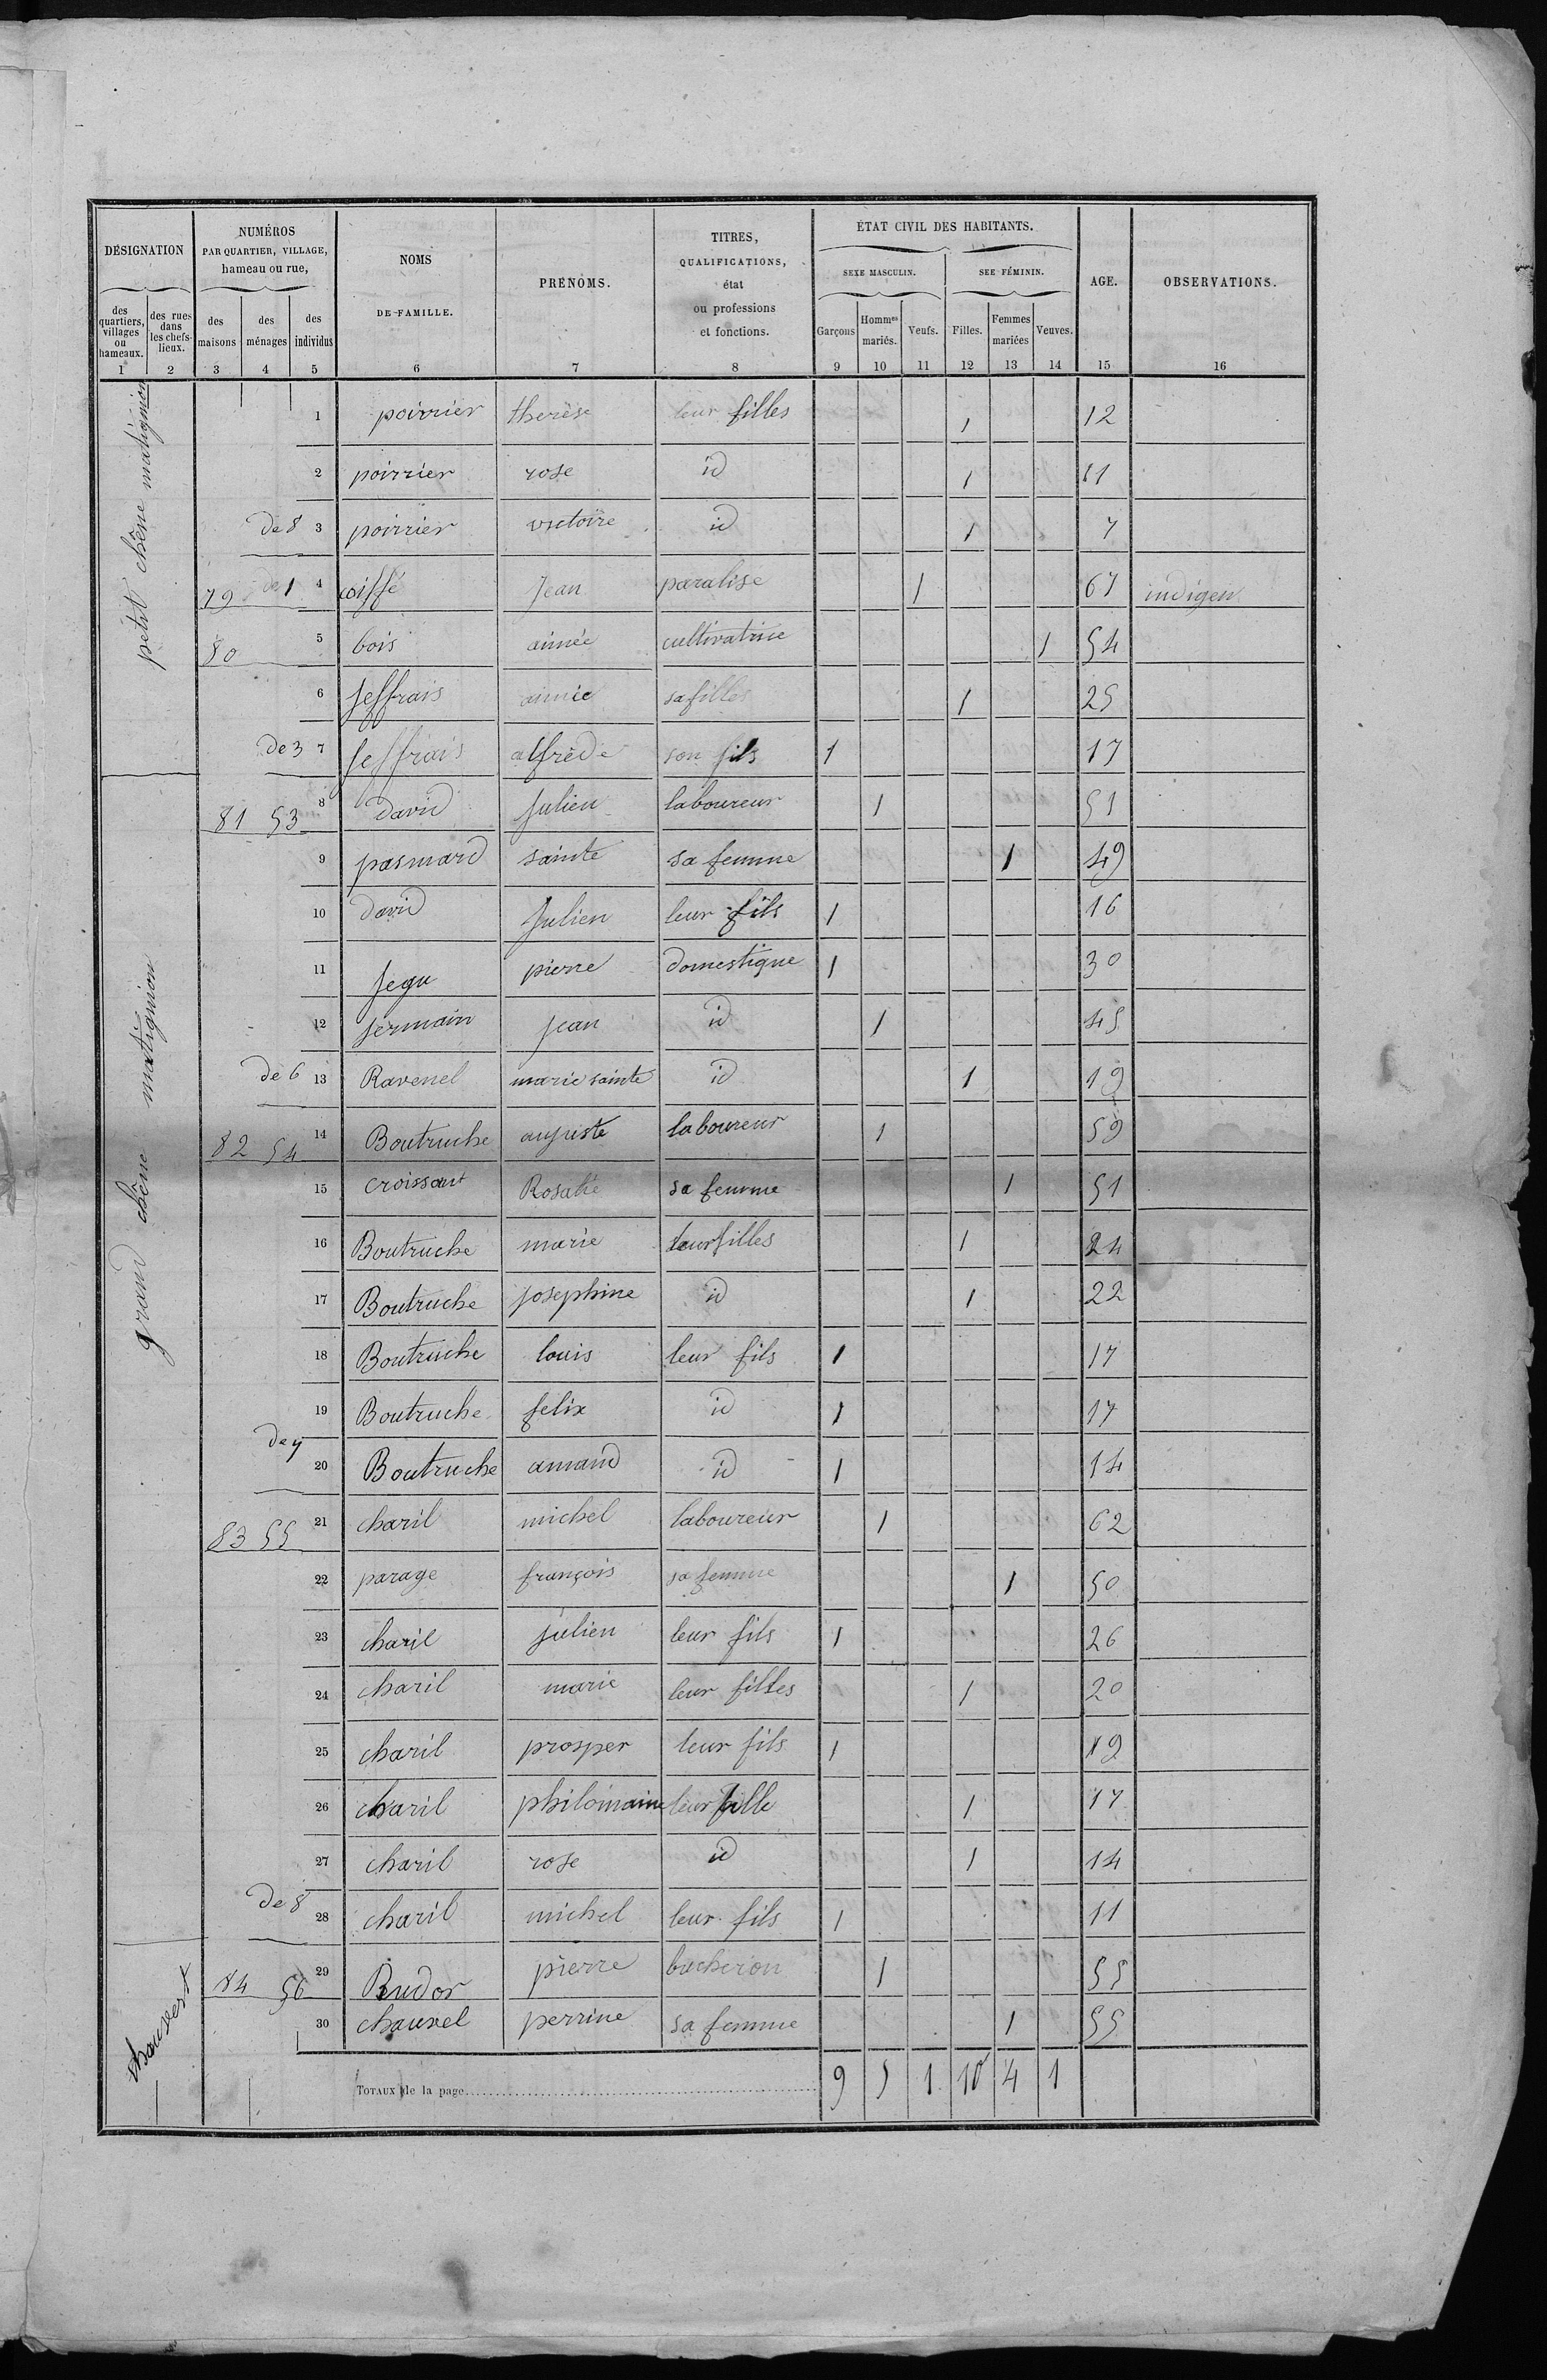 DÉSIGNATION
des quartiers, villages ou hameaux.
des rues dans les chefs-lieux.
NUMÉROS
PAR QUARTIER, VILLAGE,
hameau ou rue,
des maisons
des ménages
des individus
NOMS
DE FAMILLE.
PRÉNOMS.
TITRES,
QUALIFICATIONS,
état
ou professions
et fonctions.
ÉTAT CIVIL DES HABITANTS.
SEXE MASCULIN.
SEE FÉMININ.
Garçons
Hommes mariés.
Veufs.
Filles.
Femmes mariées
Veuves.
AGE.
OBSERVATIONS.
1 2 3 4 5 6 7 8 9 10 11 12 13 14 15 16
petit chêne matignon
1 poirrier therèse leur filles 1 12
2 poirrier rose id 1 11
de 8 3 poirrier victoire id 1 7
79 de 1 4 coiffé Jean paralise 1 67 indigen
80 5 bois aimée cultivatrice 1 54
6 Jeffrais aimée sa filles 1 25
de 3 7 Jeffrais alfrède son fils 1 17
grand chêne matignion
81 53 8 david Julien laboureur 1 51
9 pasmard sainte sa femme 1 49
10 david Julien leur fils 1 16
11 Jegu pierre domestique 1 30
12 Jermain Jean id 1 45
de 6 13 Ravenel marie sainte id 1 19
82 54 14 Boutruche auguste laboureur 1 59
15 croissant Rosalie sa femme 1 51
16 Boutruche marie leur filles 1 24
17 Boutruche Josephine id 1 22
18 Boutruche louis leur fils 1 17
19 Boutruche felix id 1 17
de 7 20 Boutruche amand id 1 14
83 55 21 charil michel laboureur 1 62
22 parage françois sa femme 1 50
23 charil julien leur fils 1 26
24 charil marie leur filles 1 20
25 charil prosper leur fils 1 19
26 charil philomaine leur fille 1 17
27 charil rose id 1 14
de 8 28 charil michel leur fils 1 11
84 56 29 Budor pierre bucheron 1 55
30 chauvel perrine sa femme 1 55
TOTAUX de la page 9 5 1 10 4 1